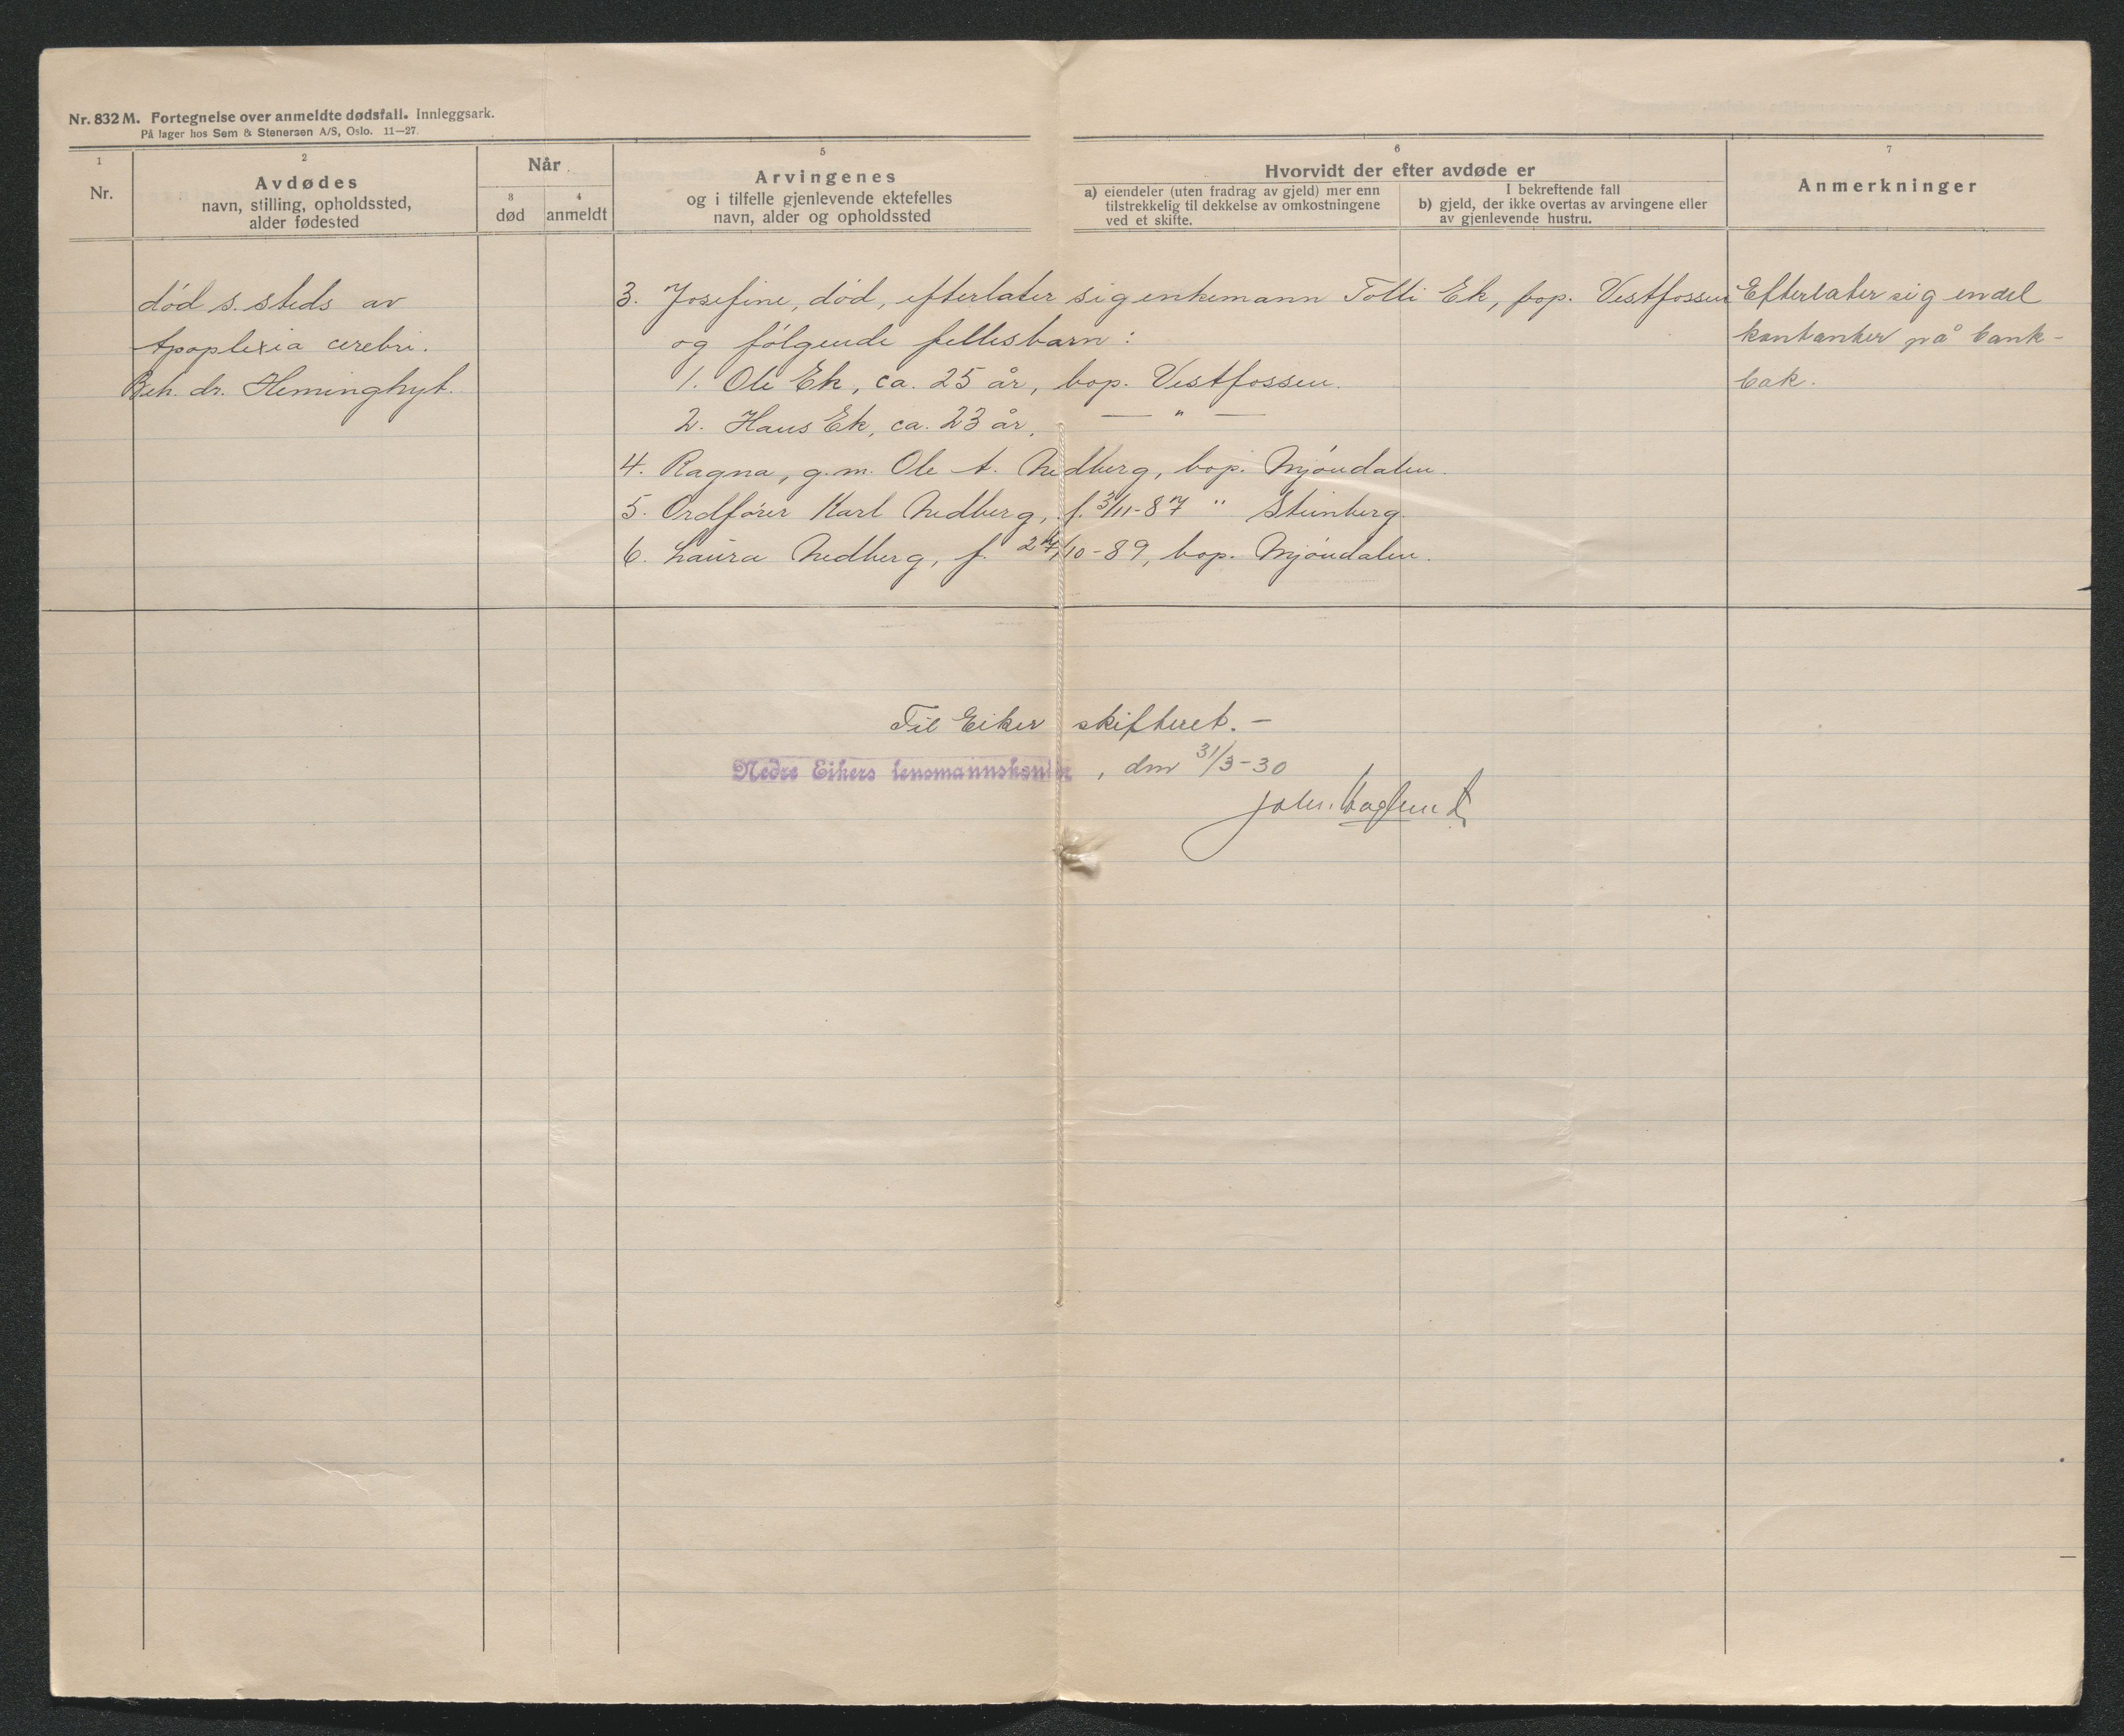 Nr. 832 M. Fortegnelse over anmeldte dødsfall. Innleggsark.
På lager hos Sem & Stenersen A/S, Oslo. 11—27.
1
Nr.
2
Avdødes
navn, stilling, opholdssted,
alder fødested
Når
3
død
4
anmeldt
5
Arvingenes
og i tilfelle gjenlevende ektefelles
navn, alder og opholdssted
6
Hvorvidt der efter avdøde er
a) eiendeler (uten fradrag av gjeld) mer enn
tilstrekkelig til dekkelse av omkostningene
ved et skifte.
I bekreftende fall
b) gjeld, der ikke overtas av arvingene eller
av gjenlevende hustru.
7
Anmerkninger
død s. steds av
Apoplexia cerebri.
Beh. dr. Heminghyt.
3. Josefine, død, efterlater sig enkemann Tolli Ek, bop. Vestfossen
og følgende fellesbarn:
1. Ole Ek, ca. 25 år, bop. Vestfossen.
2. Hans Ek, ca. 23 år, — " —
4. Ragna, g.m. Ole A. Nedberg, bop. Mjøndalen.
5. Ordfører Karl Nedberg, f. 3/11-87 " Steinberg.
6. Laura Nedberg, f. 27/10-89, bop. Mjøndalen.
Efterlater sig endel
kontanter på bank-
bok.
Til Eiker skifteret. —
Nedre Eikers lensmannskontor, den 31/3-30